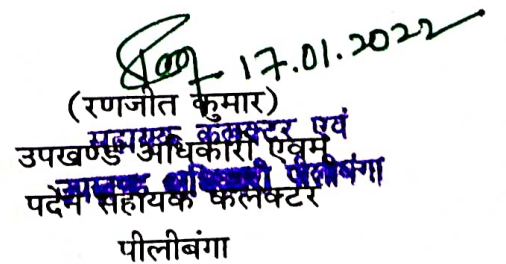 17.01.2022
(रणजीत कुमार)
सहायक कलक्टर एवं
उपखण्ड अधिकारी एवम्
उपखण्ड अधिकारी पीलीबंगा
पदेन सहायक कलक्टर
पीलीबंगा